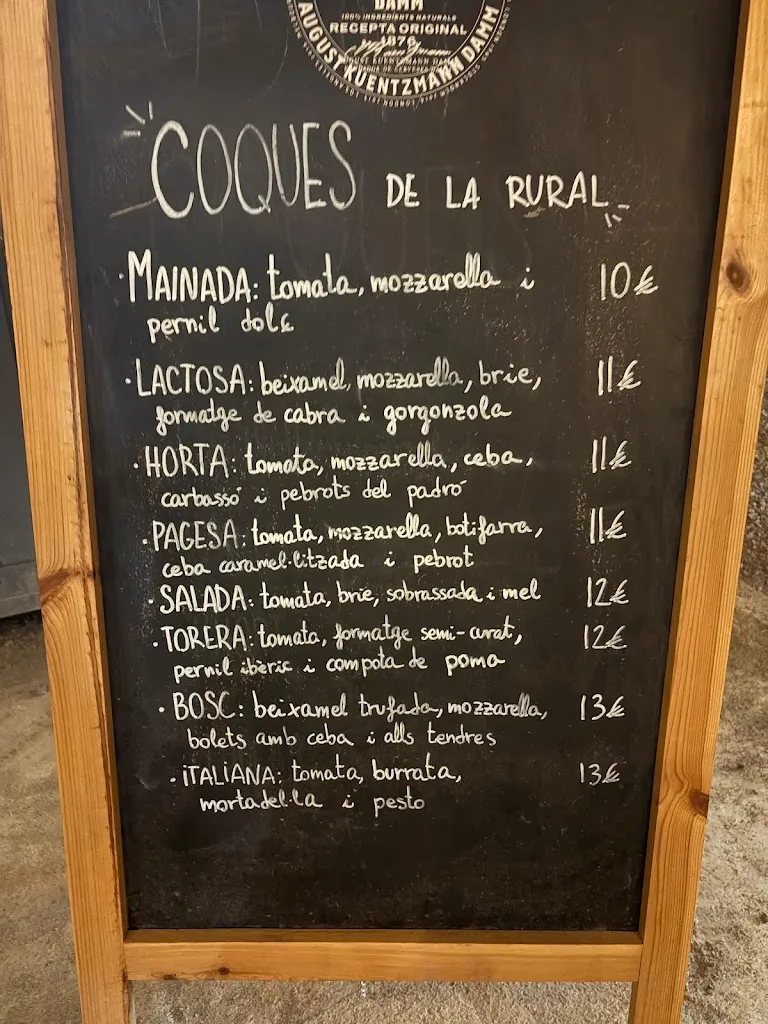 DAMM
100% INGREDIENTS NATURALS
RECEPTA ORIGINAL
1876
AUGUST KUENTZMANN DAMM
COQUES DE LA RURAL
·MAINADA: tomata, mozzarella i 10€
pernil dolç
·LACTOSA: beixamel, mozzarella, brie, 11€
formatge de cabra i gorgonzola
·HORTA: tomata, mozzarella, ceba, 11€
carbassó i pebrots del padró
·PAGESA: tomata, mozzarella, botifarra, 11€
ceba caramel·litzada i pebrot
·SALADA: tomata, brie, sobrassada i mel 12€
·TORERA: tomata, formatge semi-curat, 12€
pernil ibèric i compota de poma
·BOSC: beixamel trufada, mozzarella, 13€
bolets amb ceba i alls tendres
·ITALIANA: tomata, burrata, 13€
mortadel·la i pesto